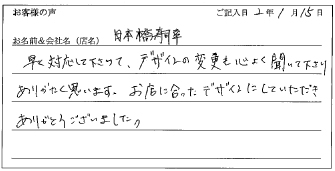 お客様の声 ご記入日 2年 1月 15日
お名前&会社名（店名） 日本橋
早く対応して下さって、デザインの変更も心よく聞いて下さり
ありがたく思います。お店に合ったデザインにしていただき
ありがとうございました。